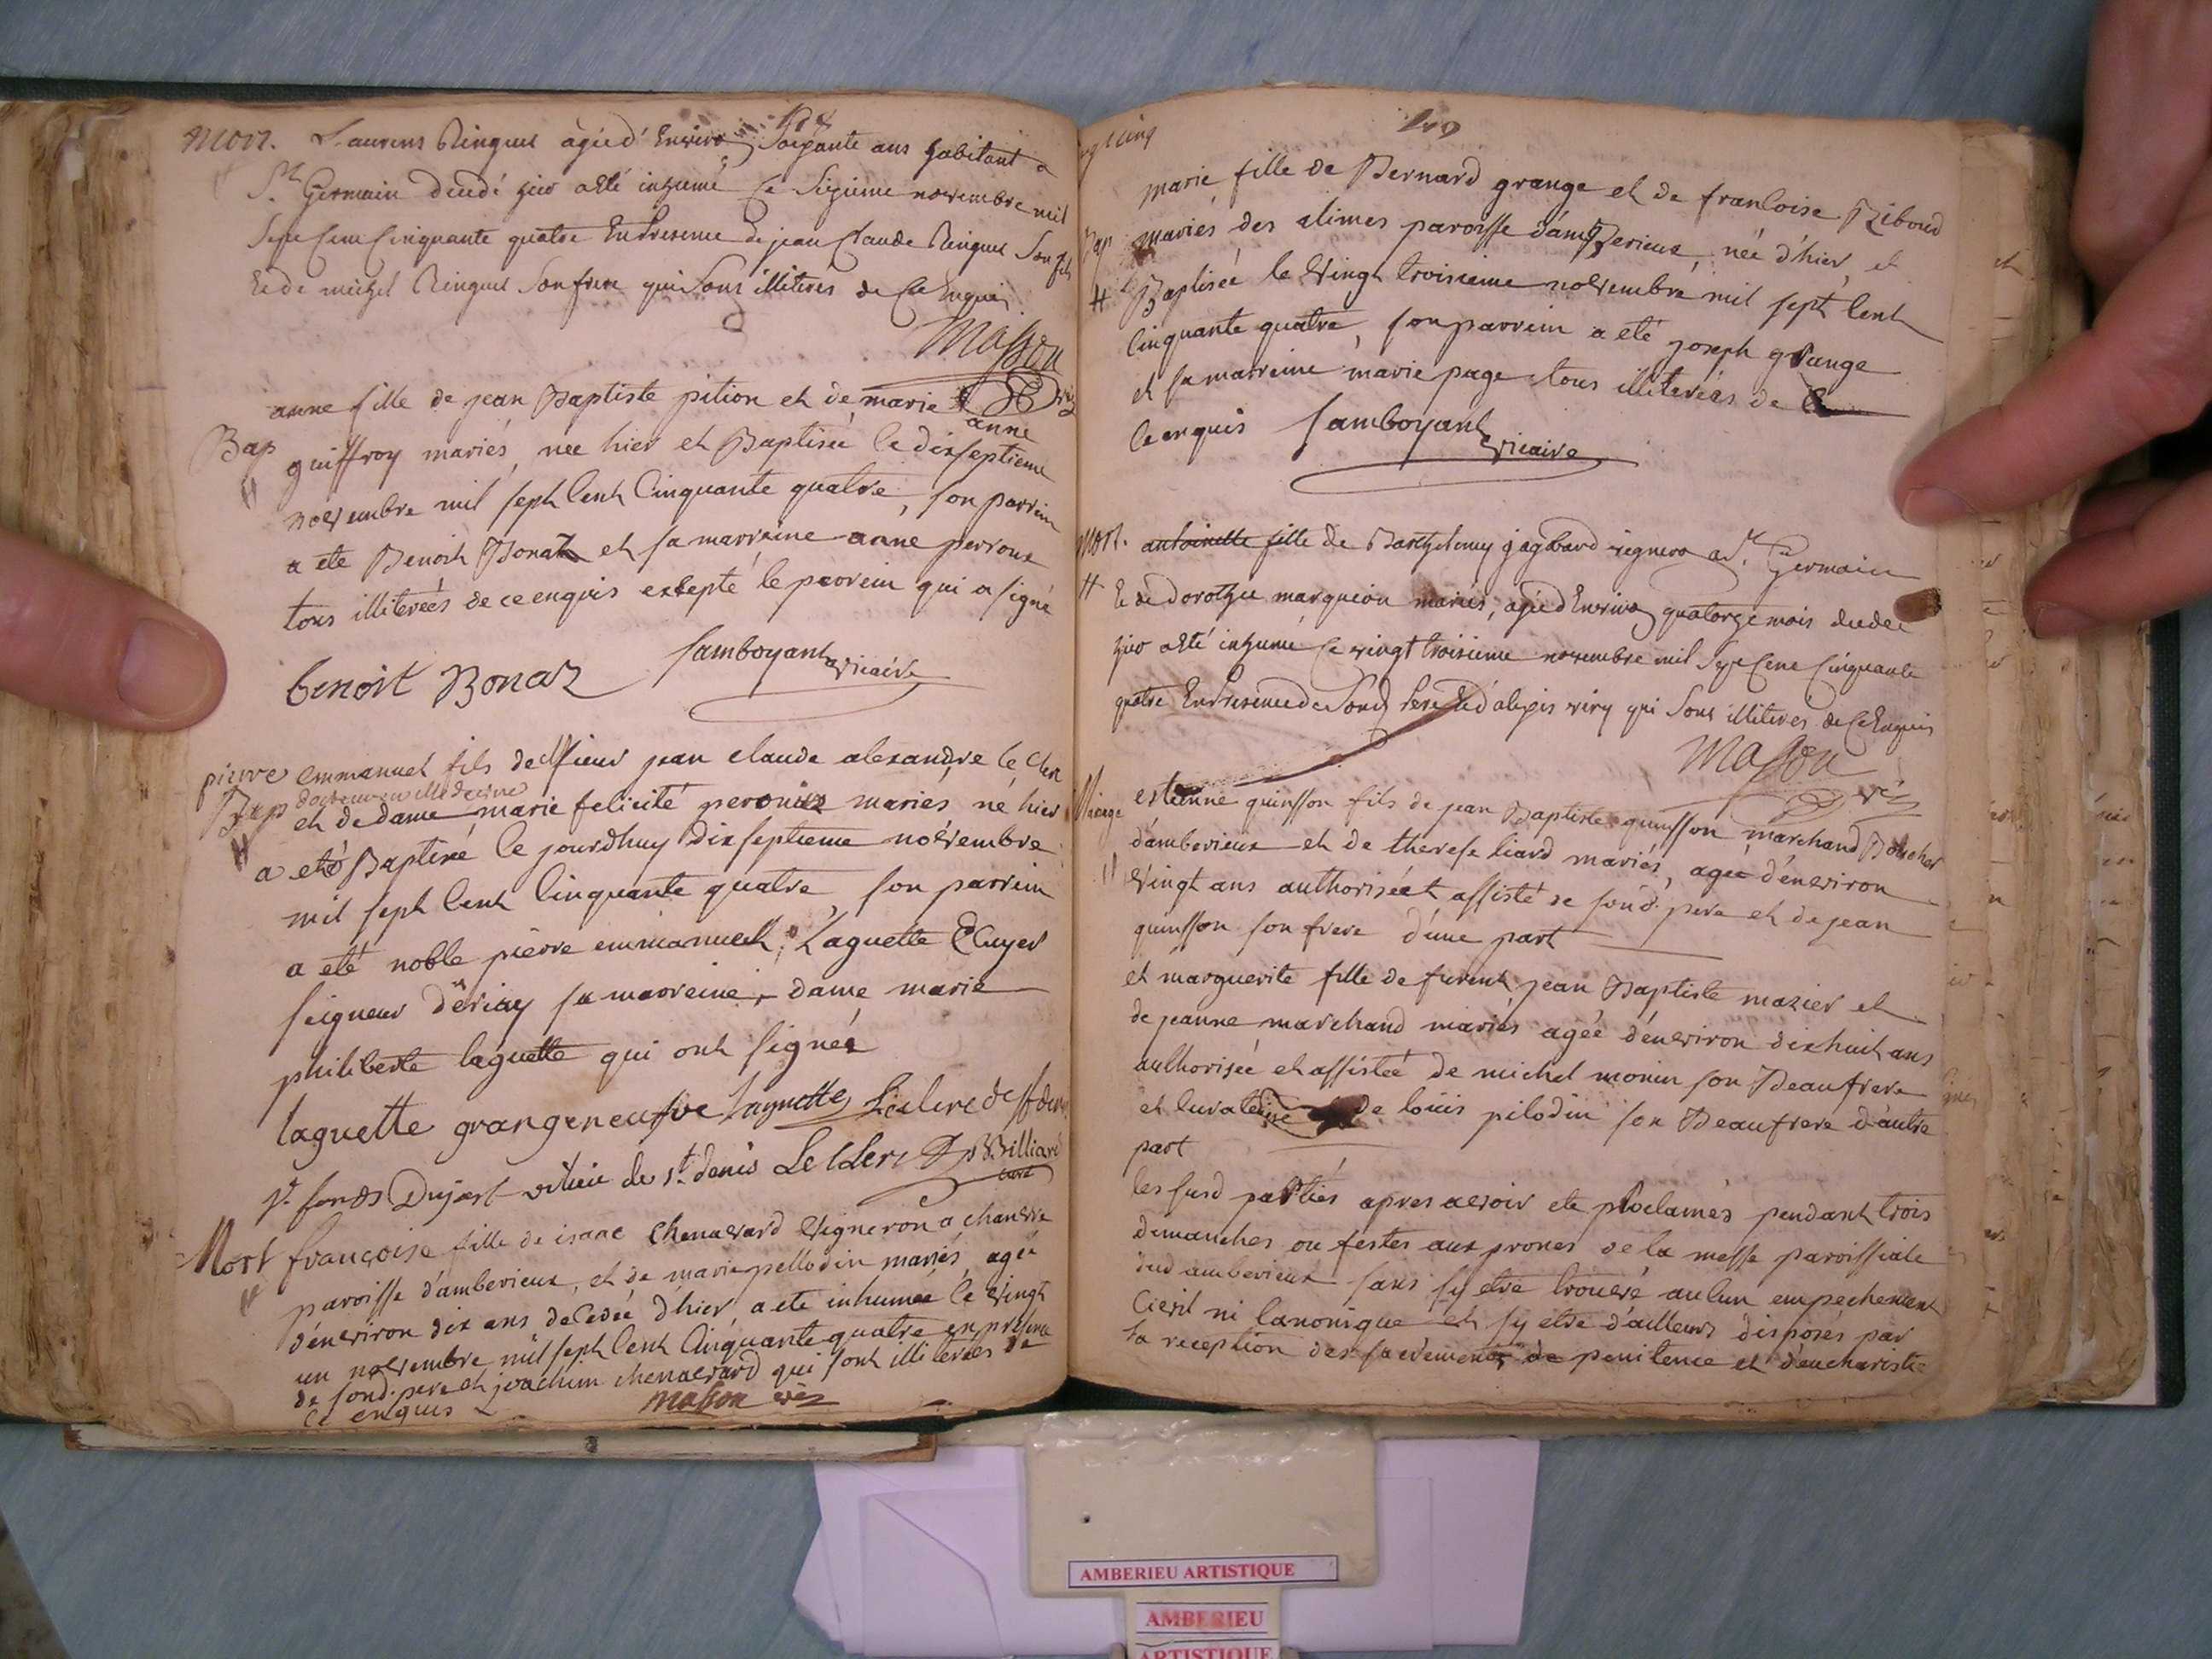 Mort. Laurens Ringuet agée d'Environ Soixante ans habitant a
St. Germain decedé hier a esté inhumé ce Sixieme novembre mil
Sept Cent Cinquante quatre En Presence de jean Claude Ringuet Son fils
Et de michel Ringuet Son frere qui Sont illiteres de Ce Enquis
Masson
anne fille de jean Baptiste pition et de marie
anne
Bap guiffroy mariés, née hier et Baptisée le dixseptieme
novembre mil sept cent cinquante quatre, son parrein
a eté Benoit Bonaz et sa marreine anne perroux
tous illiterées de ce enquis excepté le parrein qui a signé
benoit Bonaz Samboyant vicaire
pierre emmanuel fils de Msieur jean claude alexandre le Clerc
docteur en Medecine
Bap et de dame marie felicité peronier mariés né hier
a eté Baptisé ce jourdhuy dixseptieme novembre
mil sept cent cinquante quatre, son parrein
a eté noble pierre emmanuel Laguette Ecuyer
seigneur d'ériay sa marreine dame marie
philiberte laguette qui ont signés
laguette grangeneufve Laguette Leclerc de
St. fonds Dujast vilieu de St. denis LeClerc Billiard
curé
Mort françoise fille de isaac Chenavard vigneron a chanvre
paroisse d'amberieux, et de marie pellodin mariés, agée
d'environ dix ans decedée d'hier a eté inhumée le vingt
un novembre mil sept cent cinquante quatre en presence
de sond. pere et joachim chenavard qui sont illiterées de
ce enquis Masson
marie fille de Bernard grange et de francoise Riboud
Bap mariés des alimes paroisse d'amberieux, née d'hier, et
Baptisée le vingt troisieme novembre mil sept cent
cinquante quatre, son parrein a eté joseph grange
et sa marreine marie page tous illiterées de
ce enquis Samboyant vicaire
Mort. antoinette fille de Barthelemy jagbard vigneron a St. Germain
Et de dorothée marguion mariés, agée d'Environ quatorze mois decedée
hier a esté inhumé ce vingt troisieme novembre mil Sept Cent Cinquante
quatre En Presence de Sond Pere Et d'alexis viry qui Sont illiteres de Ce Enquis
Masson
Mariage estienne quinsson fils de jean Baptiste quinsson marchand Boucher
d'amberieux et de therese liard mariés, agée d'environ
vingt ans authorisé et assisté de sond. pere et de jean
quinsson son frere d'une part
et marguerite fille de furent jean Baptiste mazier et
de jeanne marchand mariés agée d'environ dixhuit ans
authorisée et assistée de michel monin son Beaufrere
et curateur de loüis pilodin son Beaufrere d'autre
part
les susd parties apres avoir eté proclamés pendant trois
dimanches ou festes aux prones de la messe paroissiale
dud amberieux sans sy etre trouvé aucun empechement
civil ni canonique et sy etre d'ailleurs disposés par
la reception des sacrements de penitence et d'eucharistie
AMBERIEU ARTISTIQUE
AMBERIEU
ARTISTIQUE